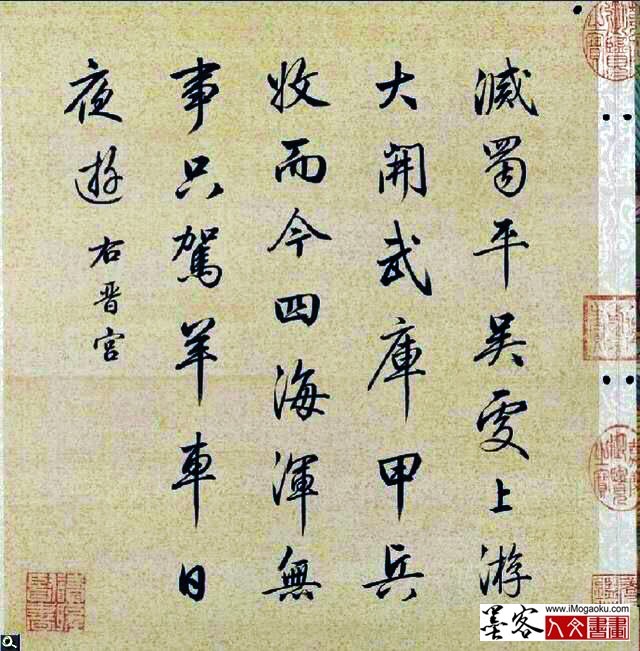 滅蜀平吳上游
大開武庫甲兵
收而今四海渾無
事只駕羊車日
夜遊 右晉宮
墨客
www.iMogaoku.com
人文書畫